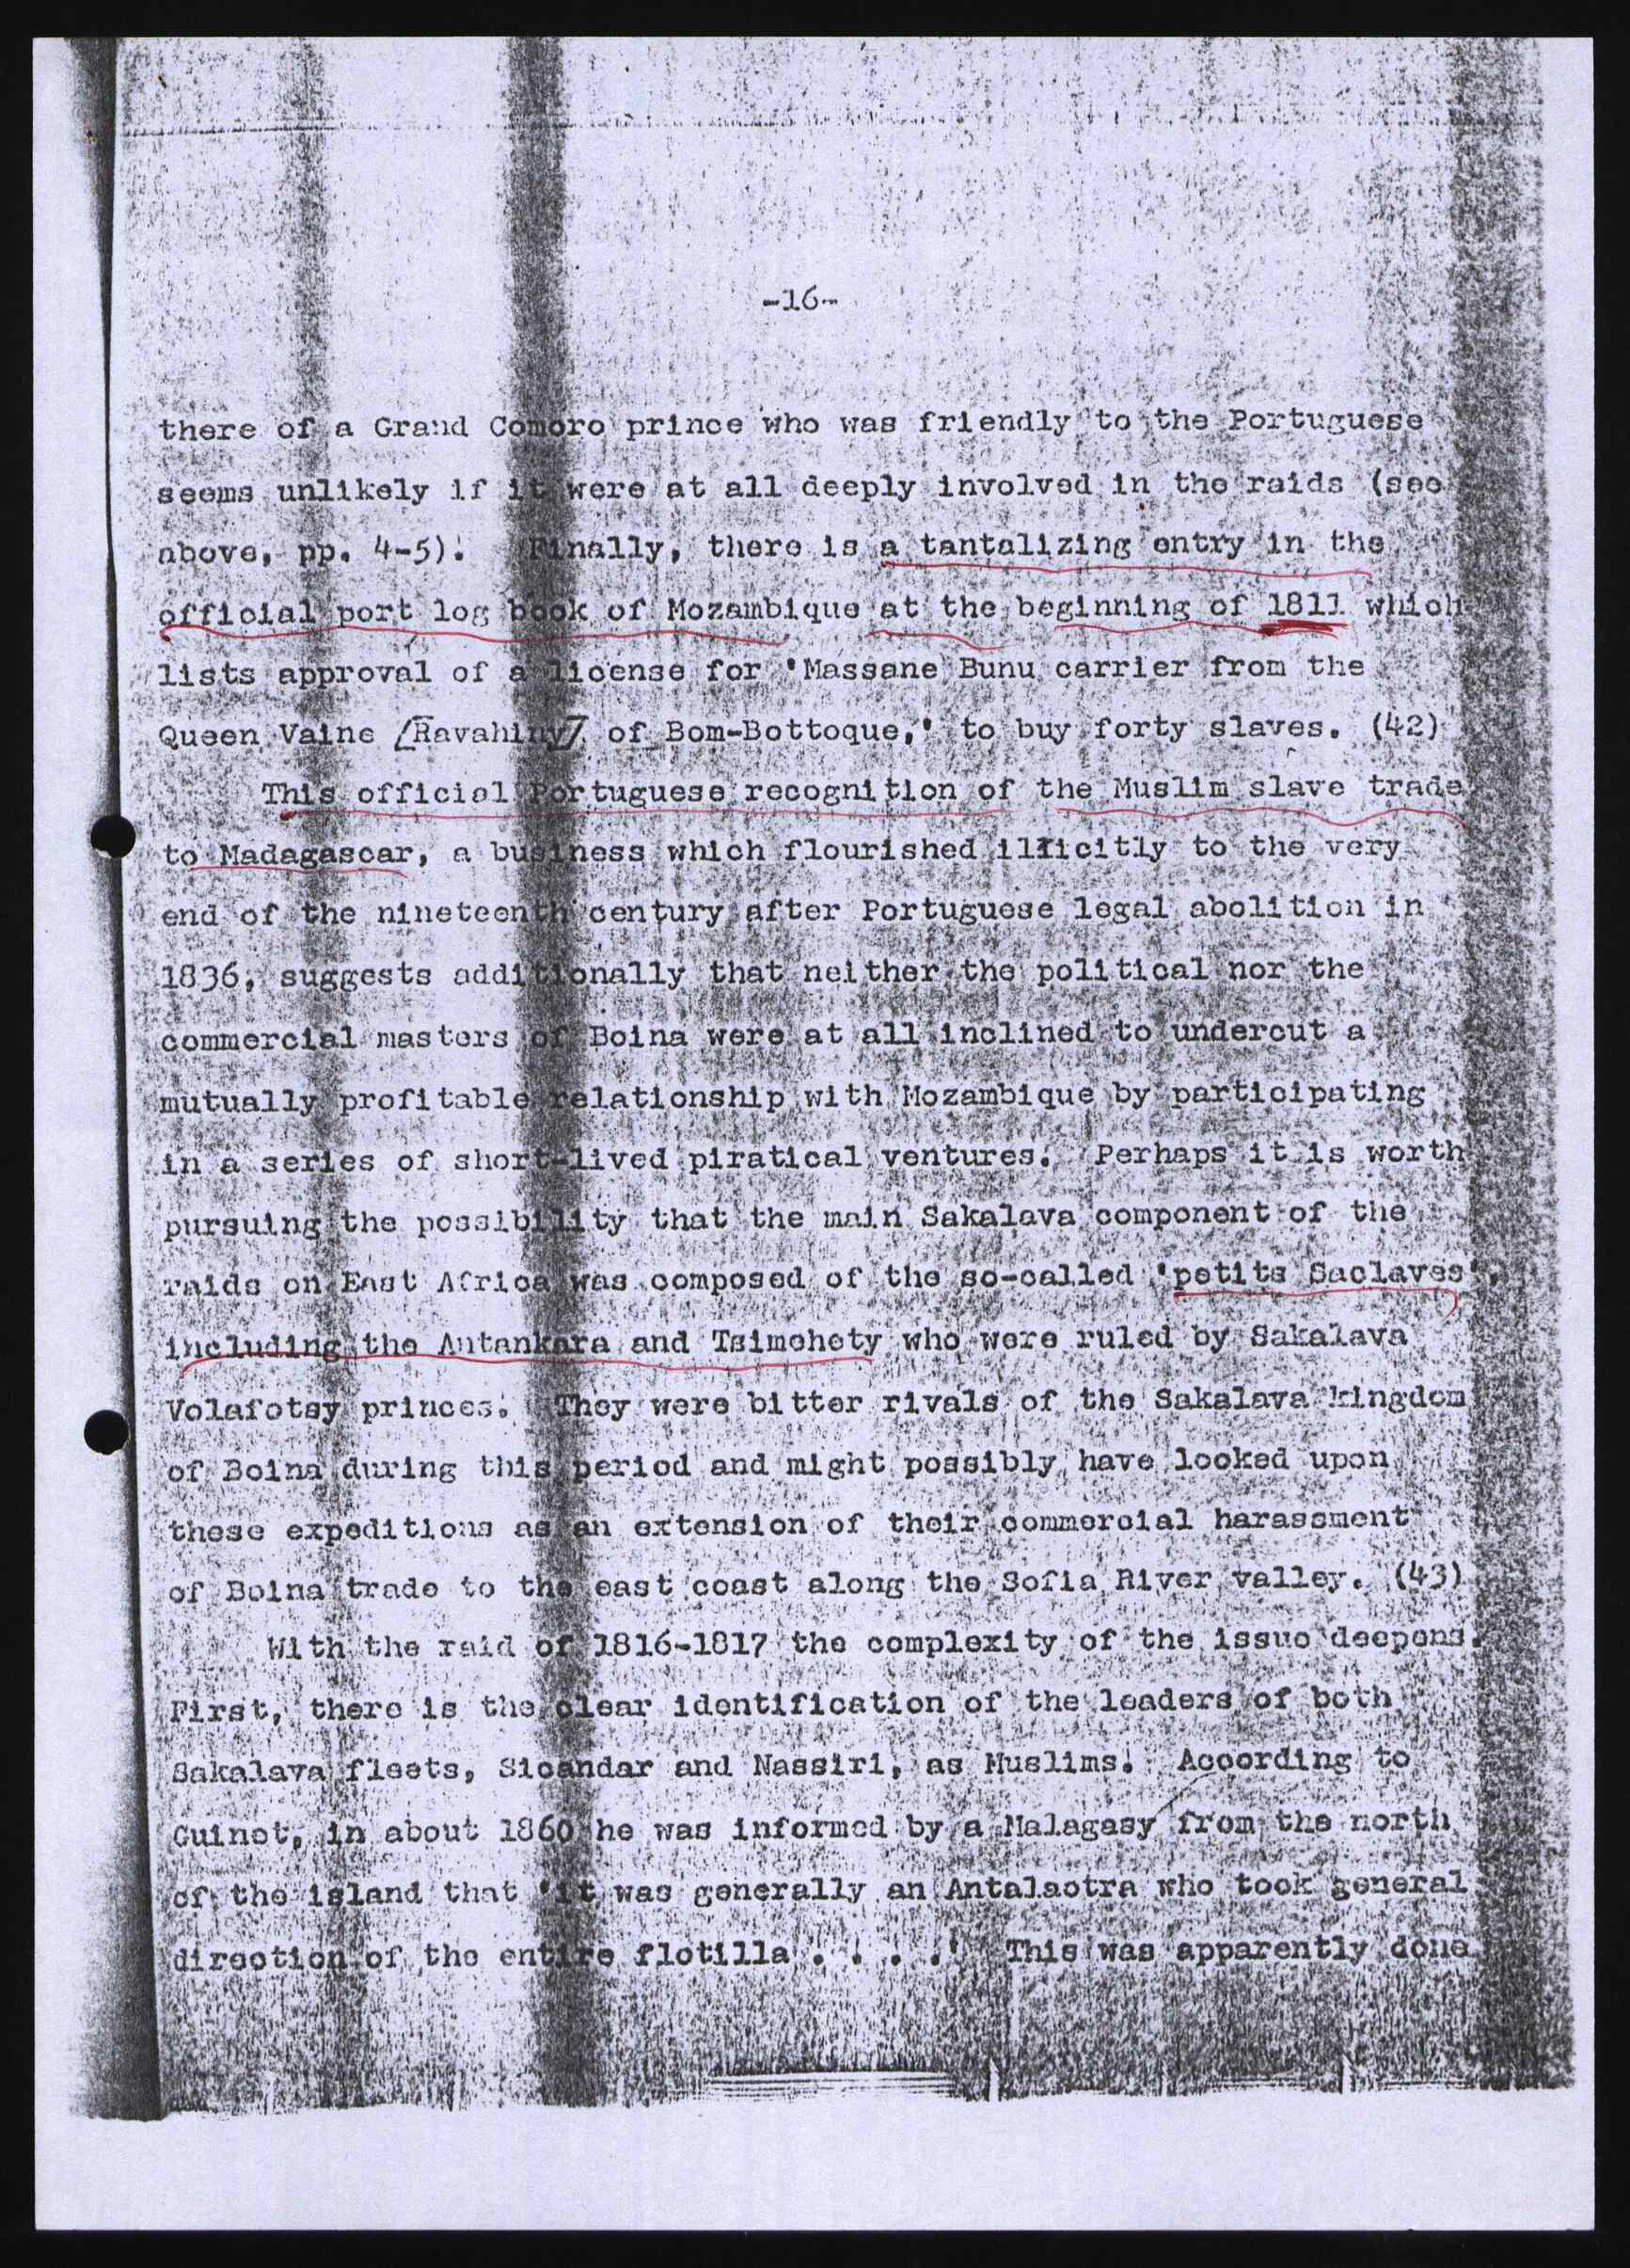 -16-
there of a Grand Comoro prince who was friendly to the Portuguese
seems unlikely if it were at all deeply involved in the raids (see
above, pp. 4-5). Finally, there is a tantalizing entry in the
official port log book of Mozambique at the beginning of 1811 which
lists approval of a license for 'Massane Bunu carrier from the
Queen Vaine [Ravahiny] of Bom-Bottoque,' to buy forty slaves. (42)
This official Portuguese recognition of the Muslim slave trade
to Madagascar, a business which flourished illicitly to the very
end of the nineteenth century after Portuguese legal abolition in
1836, suggests additionally that neither the political nor the
commercial masters of Boina were at all inclined to undercut a
mutually profitable relationship with Mozambique by participating
in a series of short-lived piratical ventures. Perhaps it is worth
pursuing the possibility that the main Sakalava component of the
raids on East Africa was composed of the so-called 'petits Saclaves',
including the Antankara and Tsimehety who were ruled by Sakalava
Volafotsy princes. They were bitter rivals of the Sakalava kingdom
of Boina during this period and might possibly have looked upon
these expeditions as an extension of their commercial harassment
of Boina trade to the east coast along the Sofia River valley. (43)
With the raid of 1816-1817 the complexity of the issue deepens.
First, there is the clear identification of the leaders of both
Sakalava fleets, Sicandar and Nassiri, as Muslims. According to
Guinet, in about 1860 he was informed by a Malagasy from the north
of the island that 'it was generally an Antalaotra who took general
direction of the entire flotilla . . . .' This was apparently done